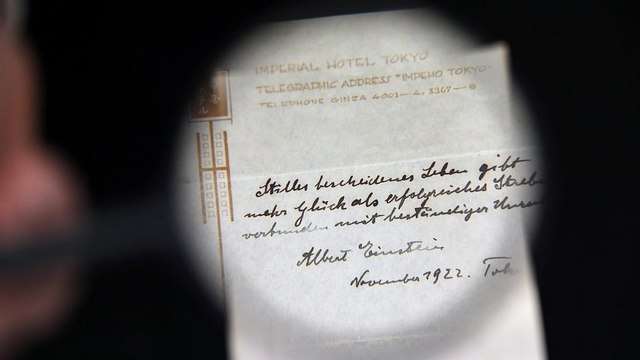 IMPERIAL HOTEL TOKYO
TELEGRAPHIC ADDRESS "IMPEHO TOKYO"
TELEPHONE GINZA
Stilles bescheidenes Leben gibt
mehr Glück als erfolgreiches Strebe
verbunden mit beständiger Unru
Albert Einstein
November 1922. Tok